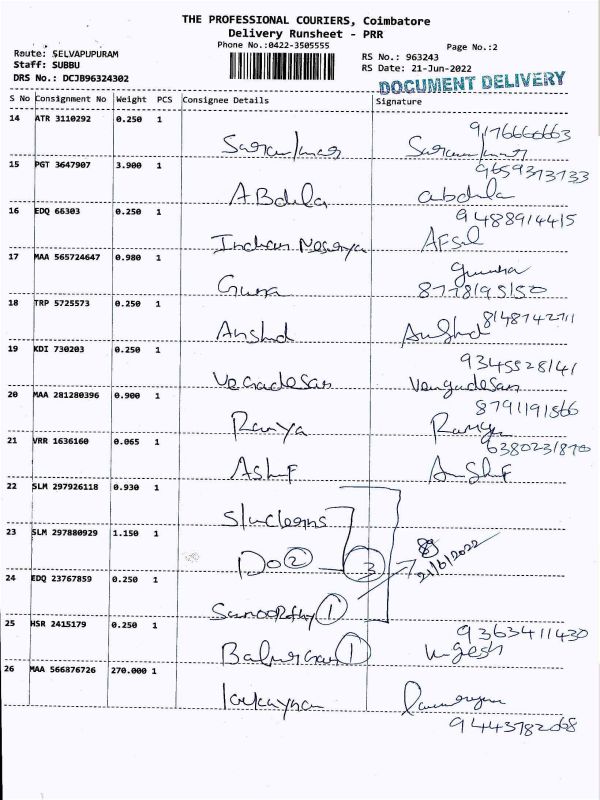 THE PROFESSIONAL COURIERS, Coimbatore
Delivery Runsheet - PRR
Phone No.:0422-3505555
Page No.:2
Route: SELVAPUPURAM
Staff: SUBBU
DRS No.: DCJB96324302
RS No.: 963243
RS Date: 21-Jun-2022
DOCUMENT DELIVERY
S No Consignment No Weight PCS Consignee Details Signature
14 ATR 3110292 0.250 1
9176666663
15 PGT 3647907 3.900 1
9659373733
ABdula abdula
16 EDQ 66303 0.250 1
9488914415
AFsil
17 MAA 565724647 0.980 1
Guna
8778195150
18 TRP 5725573 0.250 1
8148742711
Anshd Anshd
19 KDI 730203 0.250 1
9345528141
Vengadesan Vengadesan
20 MAA 281280396 0.900 1
8791191566
Ramya Ramya
21 VRR 1636160 0.065 1
6380231870
Ashif
22 SLM 297926118 0.930 1
23 SLM 297880929 1.150 1
Do 2 3
21/6/2022
24 EDQ 23767859 0.250 1
1
25 HSR 2415179 0.250 1
9363411430
1
26 MAA 566876726 270.000 1
9443782068